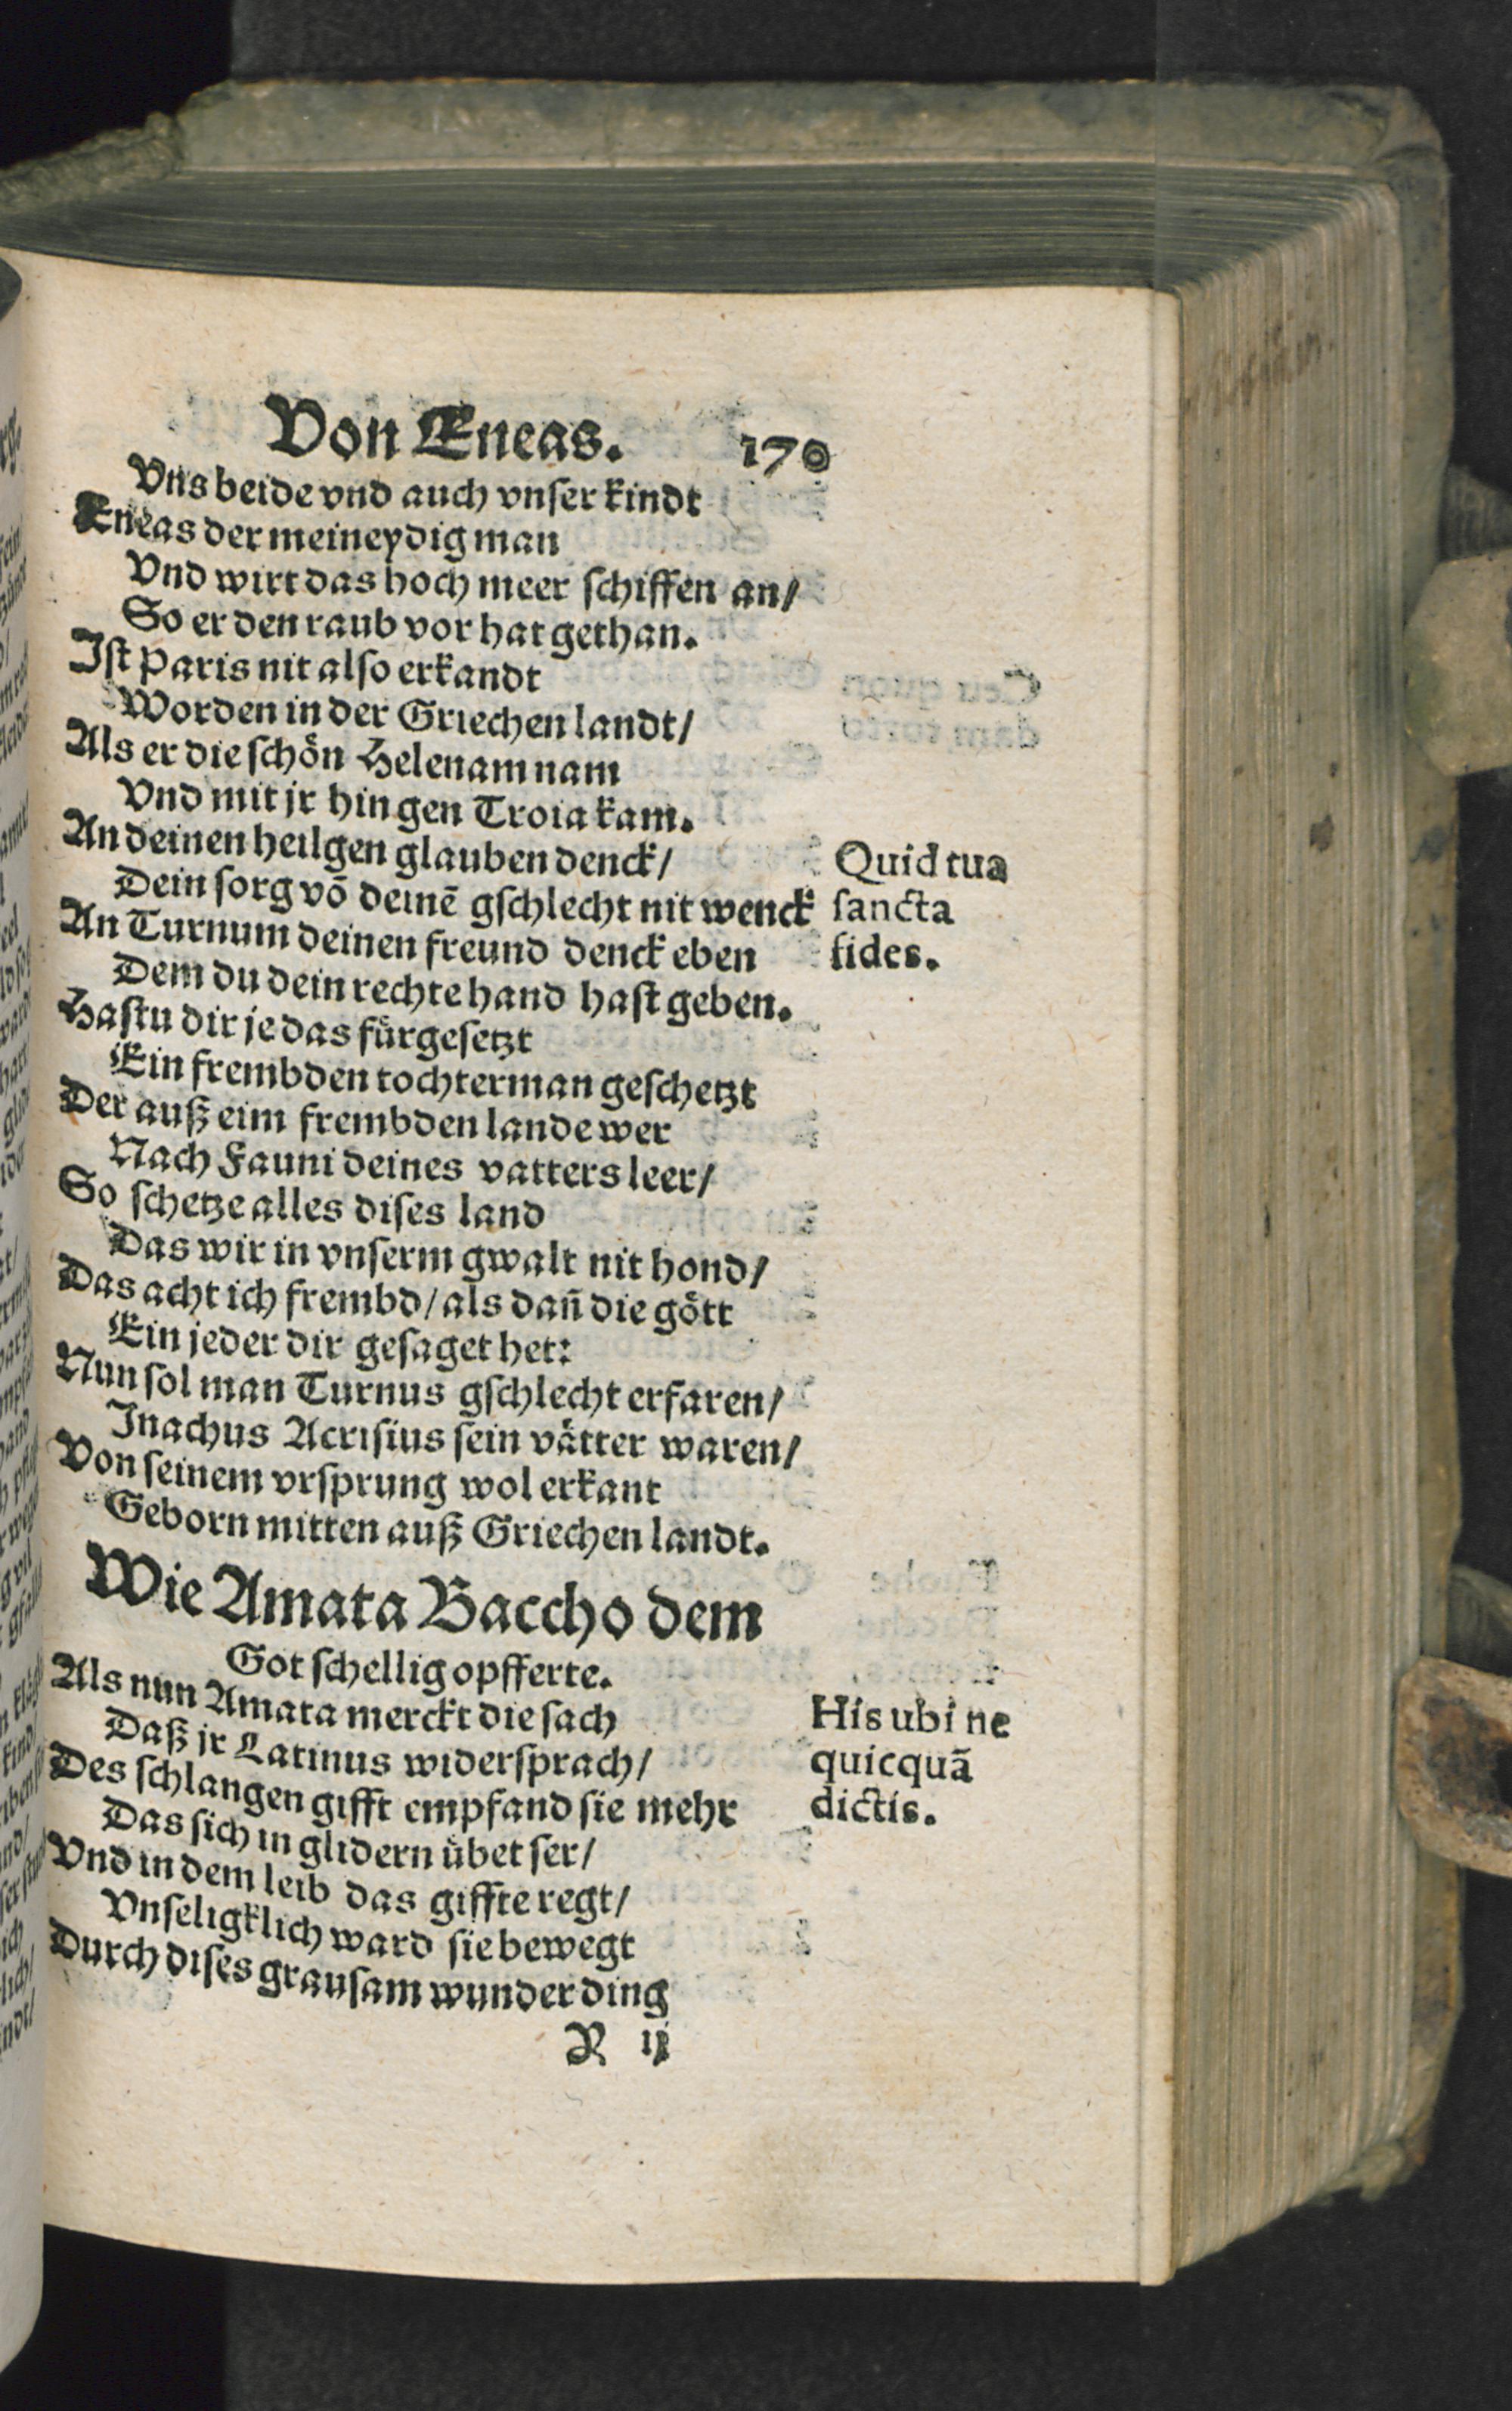 Von Eneas. 170
Vns beide vnd auch vnser kindt
Eneas der meineydig man
Vnd wirt das hoch meer schiffen an/
So er den raub vor hat gethan.
Ist Paris nit also erkandt
Worden in der Griechen landt/
Als er die schoͤn Helenam nam
Vnd mit jr hin gen Troia kam.
An deinen heilgen glauben denck/
Dein sorg võ deinẽ gschlecht nit wenck
An Turnum deinen freund denck eben
Dem du dein rechte hand hast geben.
Hastu dir je das fürgesetzt
Ein frembden tochterman geschetzt
Der auß eim frembden lande wer
Nach Fauni deines vatters leer/
So schetze alles dises land
Das wir in vnserm gwalt nit hond/
Das acht ich frembd/ als dañ die goͤtt
Ein jeder dir gesaget het:
Nun sol man Turnus gschlecht erfaren/
Inachus Acrisius sein vaͤtter waren/
Von seinem vrsprung wol erkant
Geborn mitten auß Griechen landt.
Quid tua
sancta
fides.
Wie Amata Baccho dem
Got schellig opfferte.
Als nun Amata merckt die sach
Daß jr Latinus widersprach/
Des schlangen gifft empfand sie mehr
Das sich in glidern uͤbet ser/
Vnd in dem leib das giffte regt/
Vnseligklich ward sie bewegt
Durch dises grausam wunder ding
His ubi ne
quicquã
dictis.
R ij